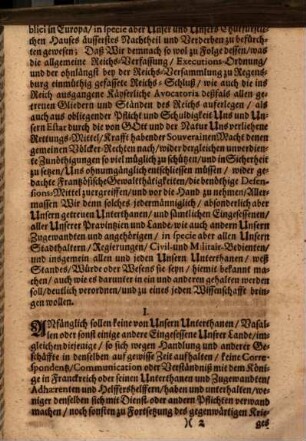 blici in Europa/ in specie aber Unser und Unsers Churfürstli-
chen Hauses äusserstes Nachtheil und Verderben zu befürch-
ten gewesen; Daß Wir demnach so wol zu Folge dessen/was
die allgemeine Reichs-Verfassung/Executions-Ordnung/
und der ohnlängst bey der Reichs-Versammlung zu Regens-
burg einmüthig gefassete Reichs-Schluß/ wie auch die ins
Reich ausgangene Käyserliche Avocatoria deßfals allen ge-
treuen Gliedern und Ständen des Reichs auferlegen / als
auch aus obliegender Pflicht und Schuldigkeit Uns und Un-
sern Estat durch die von GOtt und der Natur Uns verliehene
Rettungs-Mittel/ Krafft habender Souverainen Macht denen
gemeinen Völcker-Rechten nach/wider dergleichen unverdien-
te Zunöthigungen so viel müglich zu schützen/und in Sicherheit
zu setzen/Uns ohnumgänglich entschliessen müssen / wider ge-
dachte Frantzösische Gewaltthätigkeiten/die benöthigte Defen-
sions-Mittel zu ergreiffen/und vor die Hand zu nehmen/Aller-
massen Wir denn solches jedermänniglich / absonderlich aber
Unsern getreuen Unterthanen/ und sämtlichen Eingesessenen/
aller Unserer Provintzien und Lande/wie auch andern Unsern
Zugewandten und angehörigen/ in specie aber allen Unsern
Stadthaltern/Regierungen/ Civil- und Militair-Bedienten/
und insgemein allen und jeden Unsern Unterthanen/ weß
Standes/Würde oder Wesens sie seyn / hiemit bekannt ma-
chen/ auch wie es darunter in ein und anderen gehalten werden
soll/deutlich verordnen/und zu eines jeden Wissenschafft brin-
gen wollen.
I.
ANfänglich sollen keine von Unsern Unterthanen/ Vasal-
len oder sonst einige andere Eingesessene Unser Lande/im-
gleichen dieienige / so sich wegen Handlung und anderer Ge-
schäffte in denselben auf gewisse Zeit aufhalten / keine Corre-
spondentz/Communication oder Verständniß mit dem Köni-
ge in Franckreich oder seinen Unterthanen und Zugewandten/
Adhærenten und Helffershelffern/haben und unterhalten/we-
niger denselben sich mit Dienst- oder andern Pflichten verwand
machen/ noch sonsten zu Fortsetzung des gegenwärtigen Krie-
)( 2 ges